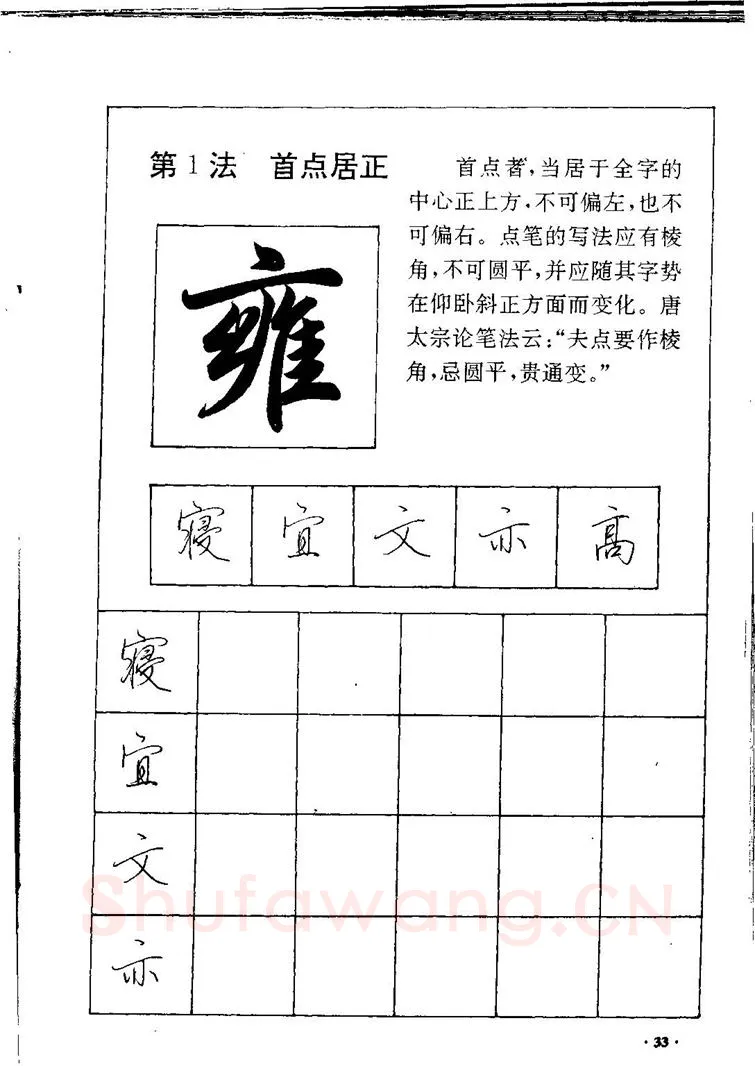 第1法 首点居正
首点者,当居于全字的
中心正上方,不可偏左,也不
可偏右。点笔的写法应有棱
角,不可圆平,并应随其字势
在仰卧斜正方面而变化。唐
太宗论笔法云:“夫点要作棱
角,忌圆平,贵通变。”
雍
寝 宜 文 亦 高
寝
宜
文
亦
Shufawang.CN
·33·